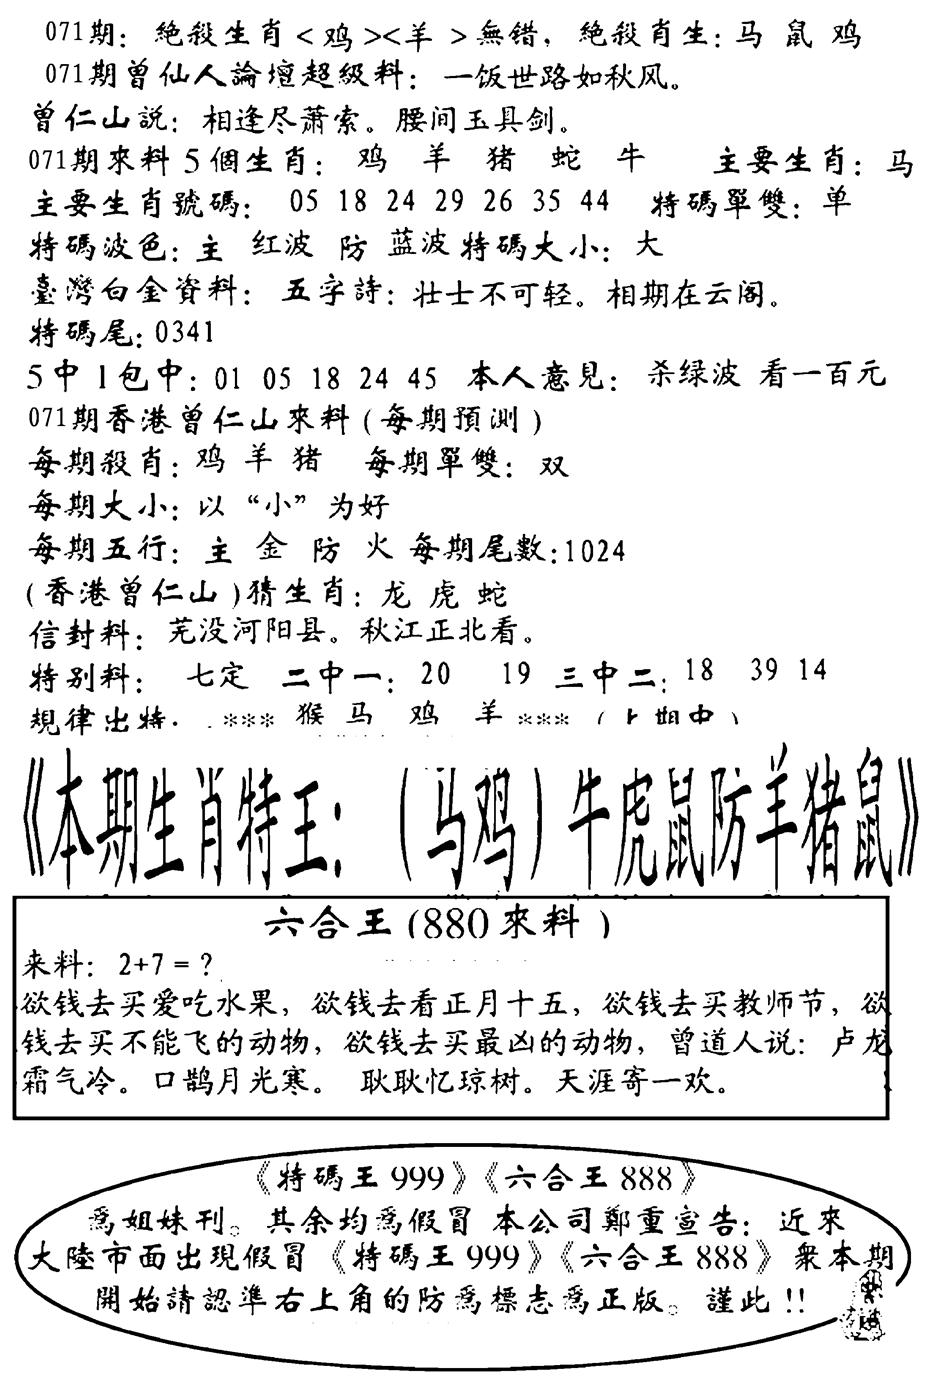 071期：絶殺生肖<鸡><羊 >無错，絶殺肖生：马 鼠 鸡
071期曾仙人論壇超級料：一饭世路如秋风。
曾仁山説：相逢尽萧索。腰间玉具剑。
071期來料5個生肖： 鸡 羊 猪 蛇 牛 主要生肖：马
主要生肖號碼： 05 18 24 29 26 35 44 特碼單雙：单
特碼波色：主 红波 防 蓝波 特碼大小：大
臺灣白金資料： 五字詩：壮士不可轻。相期在云阁。
特碼尾：0341
5中1包中：01 05 18 24 45 本人意見： 杀绿波 看一百元
071期香港曾仁山來料(每期預測)
每期殺肖：鸡 羊 猪 每期單雙：双
每期大小：以“小”为好
每期五行：主 金 防 火 每期尾數：1024
(香港曾仁山)猜生肖：龙 虎 蛇
信封料：芜没河阳县。秋江正北看。
特别料： 七定 二中一：20 19 三中二：18 39 14
規律出特. *** 猴 马 鸡 羊 *** (上期中)
《本期生肖特王：(马鸡)牛虎鼠防羊猪鼠》
六合王(880來料)
来料：2+7=？
欲钱去买爱吃水果，欲钱去看正月十五，欲钱去买教师节，欲
钱去买不能飞的动物，欲钱去买最凶的动物，曾道人说：卢龙
霜气冷。口鹊月光寒。 耿耿忆琼树。天涯寄一欢。
《特碼王999》《六合王888》
爲姐妹刊。其余均爲假冒 本公司鄭重宣告：近來
大陸市面出現假冒《特碼王999》《六合王888》衆本期
開始請認準右上角的防爲標志爲正版。謹此!!